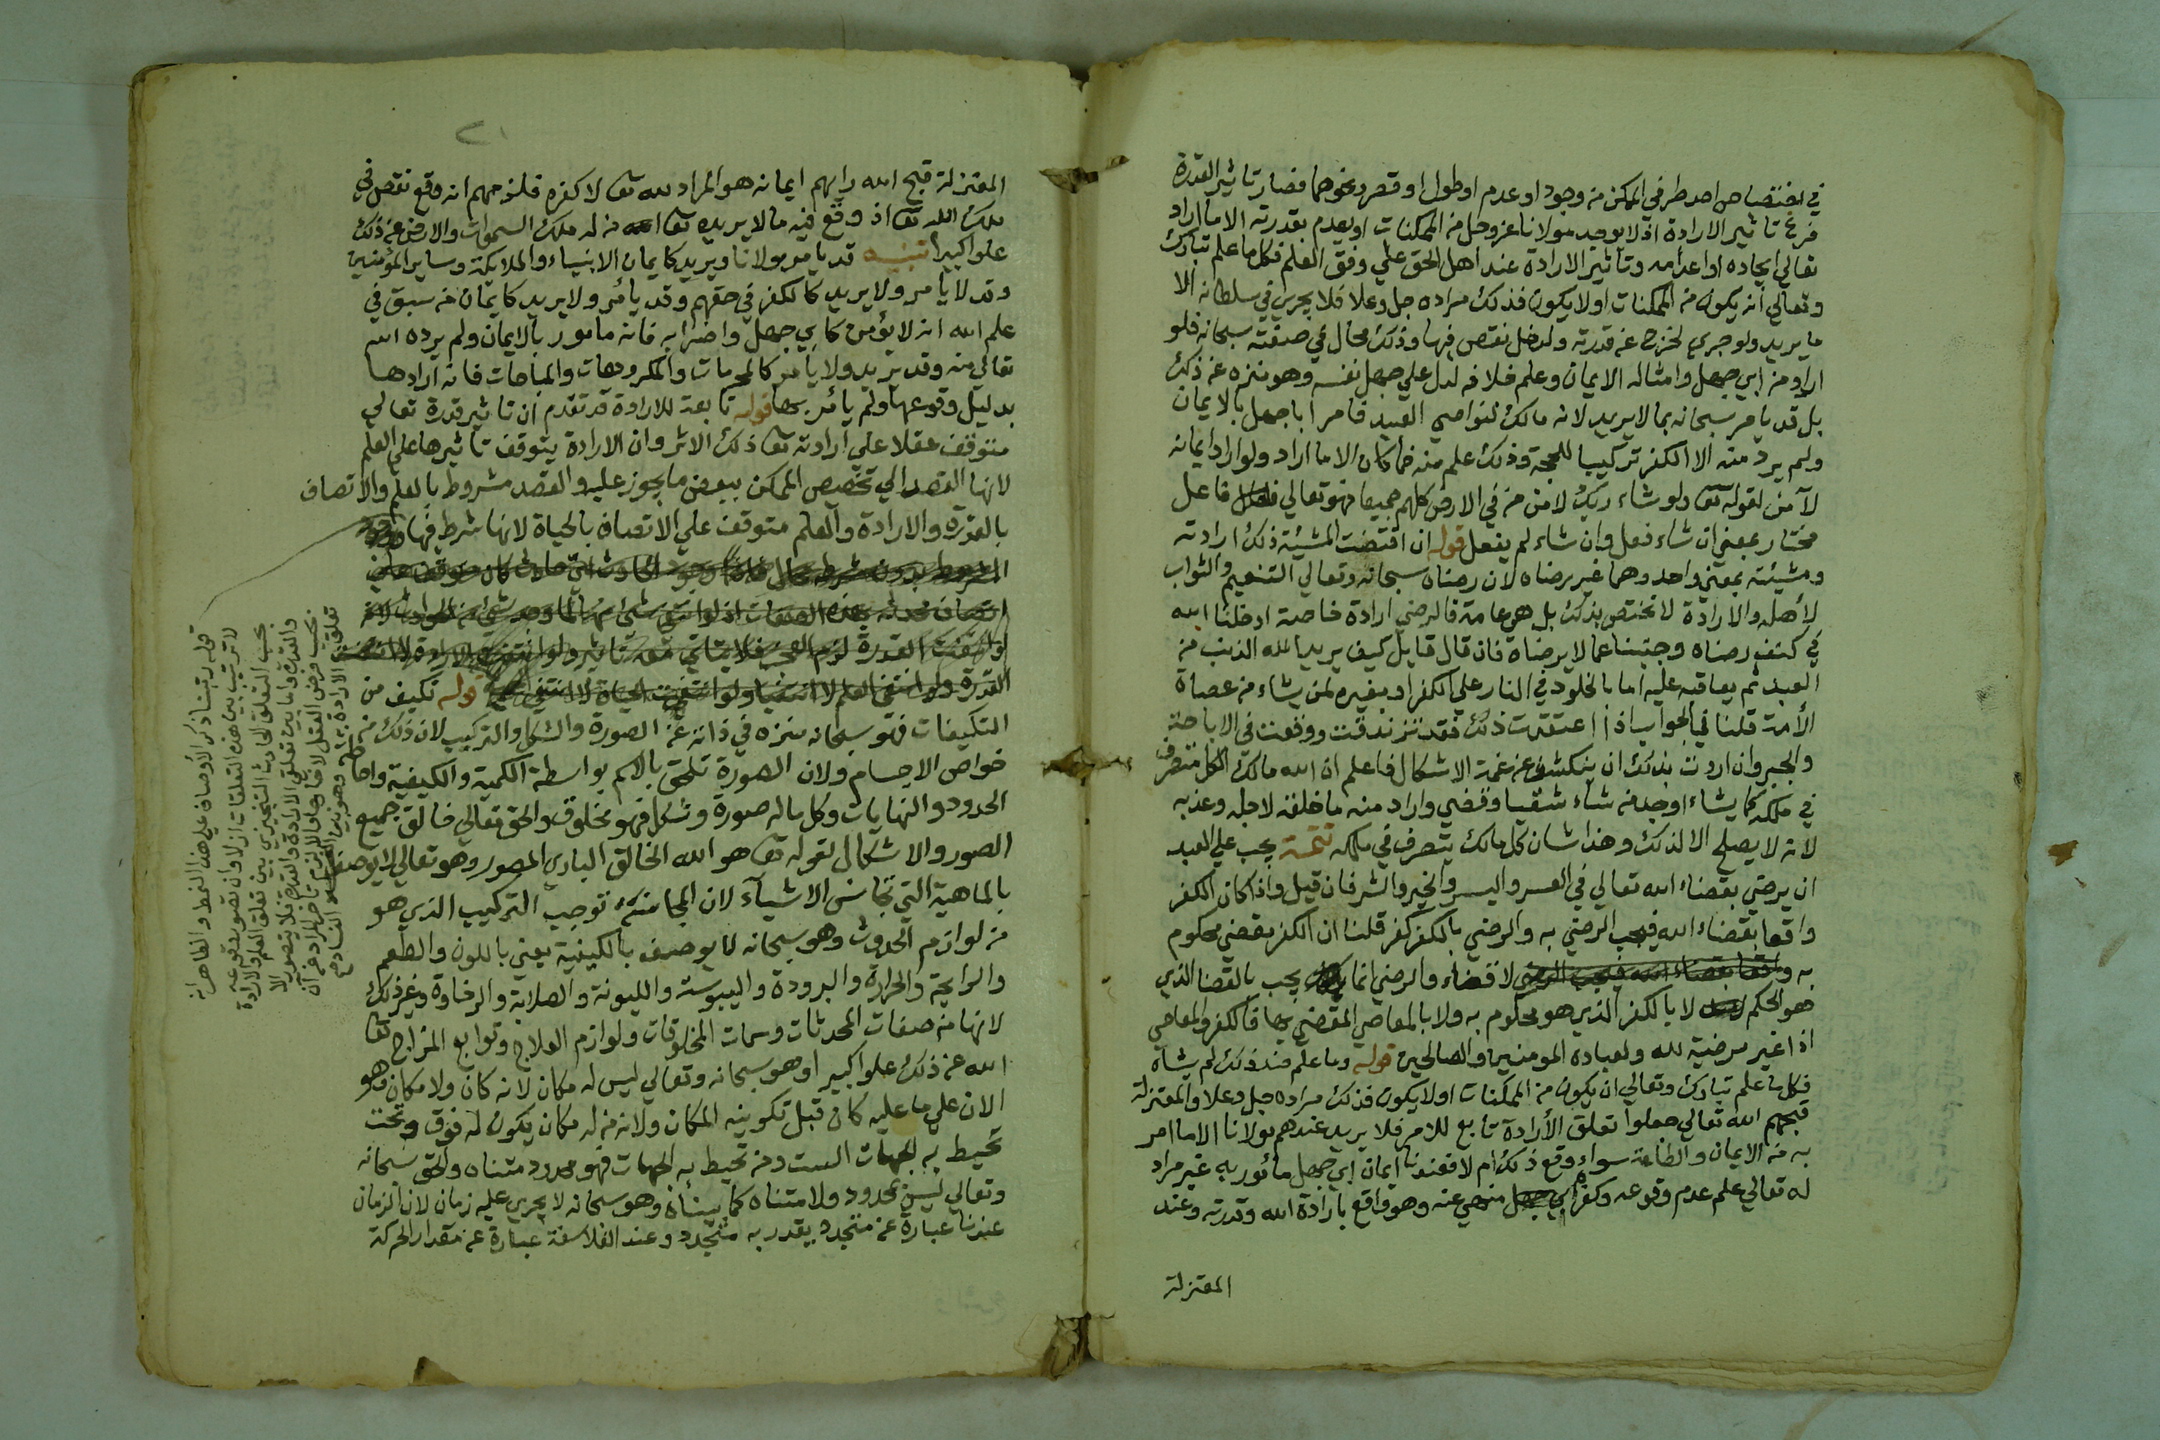 في اختصاص احد طرفي الممكن من وجود او عدم او طول او قصر ونحوهما فصار تاثير القدرة
فرع تاثير الارادة اذ لا يوجد مولانا عز وجل من الممكنات او يعدم بقدرته الا ما اراد
تعالي ايجاده او اعدامه وتاثير الارادة عند اهل الحق علي وفق العلم فكل ما علم تبارك
وتعالي انه يكون من الممكنات او لا يكون فذلك مراده جل وعلا فلا يجري في سلطانه الا
ما يريد ولو جري لخرج عن قدرته ولدخل نقص فيها وذلك محال في صفته سبحانه فلو
اراد من ابي جهل وامثاله الايمان وعلم خلافه لدل علي جهل نفسه وهو منزه عن ذلك
بل قد يامر سبحانه بما لا يريد لانه مالك لنواصي العبيد فامر ابا جهل بالايمان
ولم يرد منه الا الكفر تركيبا للحجة وذلك علم منه فما كان الا ما اراد ولو اراد ايمانه
لآمن لقوله تعا ولو شاء ربك لامن من في الارض كلهم جميعا فهو تعالي فاعل
مختار بمعني ان شاء فعل وان شاء لم يفعل قوله ان اقتضت المشيئة ذلك ارادته
ومشيئته بمعني واحد وهما غير رضاه لان رضاه سبحانه وتعالي التنعيم والثواب
لأهله والارادة لا تختص بذلك بل هي عامة فالرضي ارادة خاصة ادخلنا الله
في كنف رضاه وجنبنا عما لا يرضاه فان قال قايل كيف يريد الله الذنب من
العبد ثم يعاقبه عليه اما بالخلود في النار علي الكفر او بغيره لمن يشاء من عصاة
الأمة قلنا في الجواب اذا اعتقدت ذلك فقد تزندقت ووقعت في الاباحة
والجبر وان اردت بذلك ان ينكشف عن غمة الاشكال فاعلم ان الله مالك الكل متصرف
في ملكه كما يشاء اوجد من شاء شقيا وقضي واراد منه ما خلقه لاجله وعذبه
لانه لا يصلح الا لذلك وهذا شان كل مالك يتصرف في ملكه تتمة يجب علي العبد
ان يرضي بقضاء الله تعالي في العسر واليسر والخير والشر فان قيل واذا كان الكفر
واقعا بقضاء الله فيجب الرضي به والرضي بالكفر كفر قلنا ان الكفر مقضي محكوم
به لا قضاء والرضي انما يجب بالقضا الذي
هو الحكم لا بالكفر الذي هو محكوم به ولا بالمعاصي المقضي بها فالكفر والمعاصي
اذا غير مرضية لله ولعباده المومنين والصالحين قوله وما علم منه ذلك لم يشأه
فكل ما علم تبارك وتعالي ان يكون من الممكنات او لا يكون فذلك مراده جل وعلا والمعتزلة
قبحهم الله تعالي جعلوا تعلق الأرادة تابع للامر فلا يريد عندهم مولانا الا ما امر
به من الايمان والطاعة سواء وقع ذلك ام لا فعندنا ايمان ابي جهل مأمور به غير مراد
له تعالي علم عدم وقوعه وكفر ابي جهل منهي عنه وهو واقع بارادة الله وقدرته وعند
المعتزلة
٢١
المعتزلة قبح الله رايهم ايمانه هو المراد لله تعا لا كفره فلزمهم انه وقع نقص في
ملك الله تعا اذ وقع فيه ما لا يريده تعا من له ملك السموات والارض عن ذلك
علوا كبيرا تنبيه قد يامر مولانا ويريد كايمان الانبياء والملايكة وساير المؤمنين
وقد لا يامر ولا يريد كالكفر في حقهم وقد يأمر ولا يريد كايمان من سبق في
علم الله انه لا يؤمن كابي جهل واضرابه فانه مامور بالايمان ولم يرده الله
تعالي منه وقد يريد ولا يامر كالمحرمات والمكروهات والمباحات فانه ارادها
بدليل وقوعها ولم يأمر بها قوله تابعة للارادة قد تقدم ان تاثير قدرة تعالي
متوقف عقلا علي ارادته تعا ذلك الاثر وان الارادة يتوقف تاثيرها علي العلم
لانها القصد الي تخصيص الممكن ببعض ما يجوز عليه والقصد مشروط بالعلم والاتصاف
بالقدرة والارادة والعلم متوقف علي الاتصاف بالحياة لانها شرط فيها
قوله تكيف من
التكيفات فهو سبحانه منزه في ذاته عن الصورة والشكل والتركيب لان ذلك من
خواص الاجسام ولان الصورة تلحق بالكم بواسطة الكمية والكيفية واحاطة
الحدود والنهايات وكل ماله صورة وشكل فهو مخلوق والحق تعالي خالق جميع
الصور والاشكال لقوله تعا هو الله الخالق الباري المصور وهو تعالي لا يوصف
بالماهية التي تجانس الاشياء لان المجانسة توجب التركيب الذي هو
من لوازم الحدوث وهو سبحانه لا يوصف بالكيفية يعني باللون والطعم
والرايحة والحرارة والبرودة واليبوسة والليونة والصلابة والرخاوة وغير ذلك
لانها من صفات المحدثات وسمات المخلوقات ولوازم العلاج وتوابع المزاج تعا
الله عن ذلك علوا كبيرا وهو سبحانه وتعالي ليس له مكان لانه كان ولا مكان وهو
الان علي ما عليه كان قبل تكوينه المكان ولانه من له مكان يكون له فوق وتحت
تحيط به الجهات الست ومن تحيط به الجهات فهو محدود متناه والحق سبحانه
وتعالي ليس بمحدود ولا متناه كما بيناه وهو سبحانه لا يجري عليه زمان لان الزمان
عندنا عبارة عن متجدد يقدر به متجدد وعند الفلاسفة عبارة عن مقدار الحركة
قوله رتبتا ذكر الأوصاف علي هذا النمط والظاهر انه
لا ترتيب بين هذه التعلقات ازلا وان تصوره وقوعه
بحسب التعلق الحادث التنجيزي بين تعلق العلم والارادة
والقدرة واما بين تعلق الارادة والقدرة فلا يتصور الا
بحسب فرض العقل لا خارجا والا لزم تاخر المراد عن
تعلق الارادة به وهو